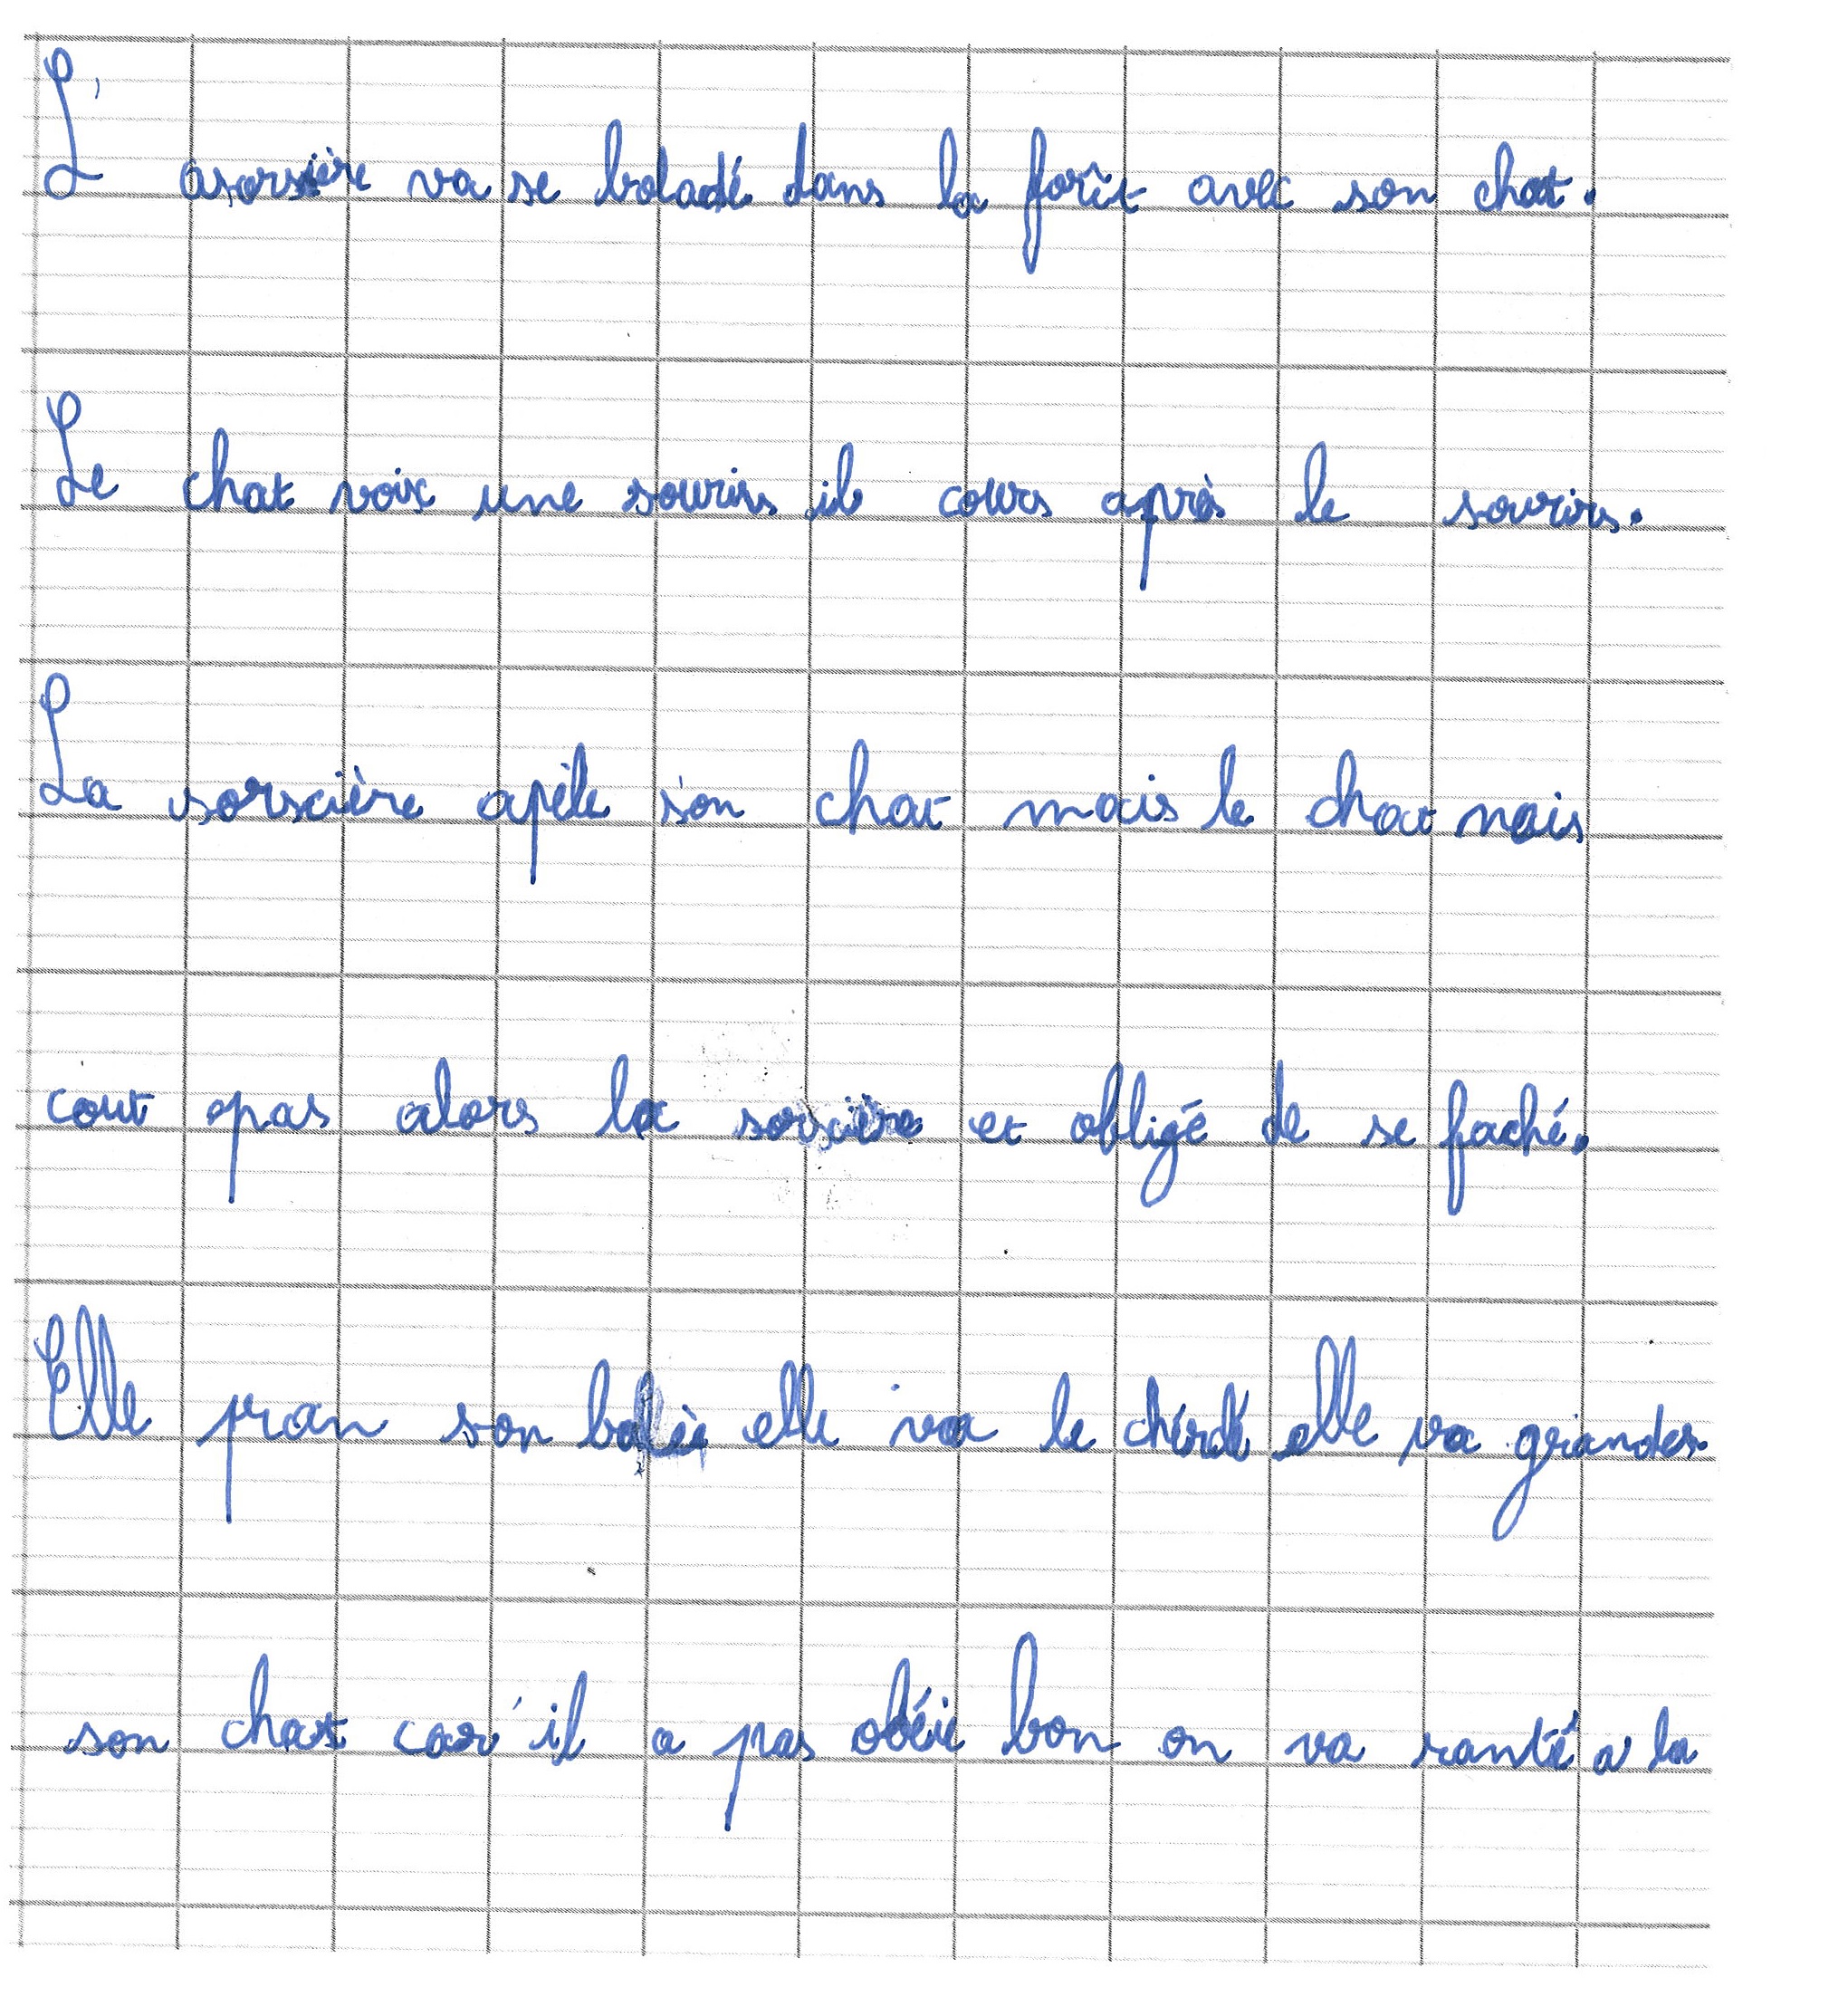 L' asorsière va se baladé dans la forêt avec son chat.
Le chat voix une souris il cours après le souris.
La sorscière apèle son chat mais le chat nais
cout pas alors la sorcière et obligé de se faché.
Elle pran son balèi elle va le chérché elle va grander
son chat car il a pas obéie bon on va rantré a la